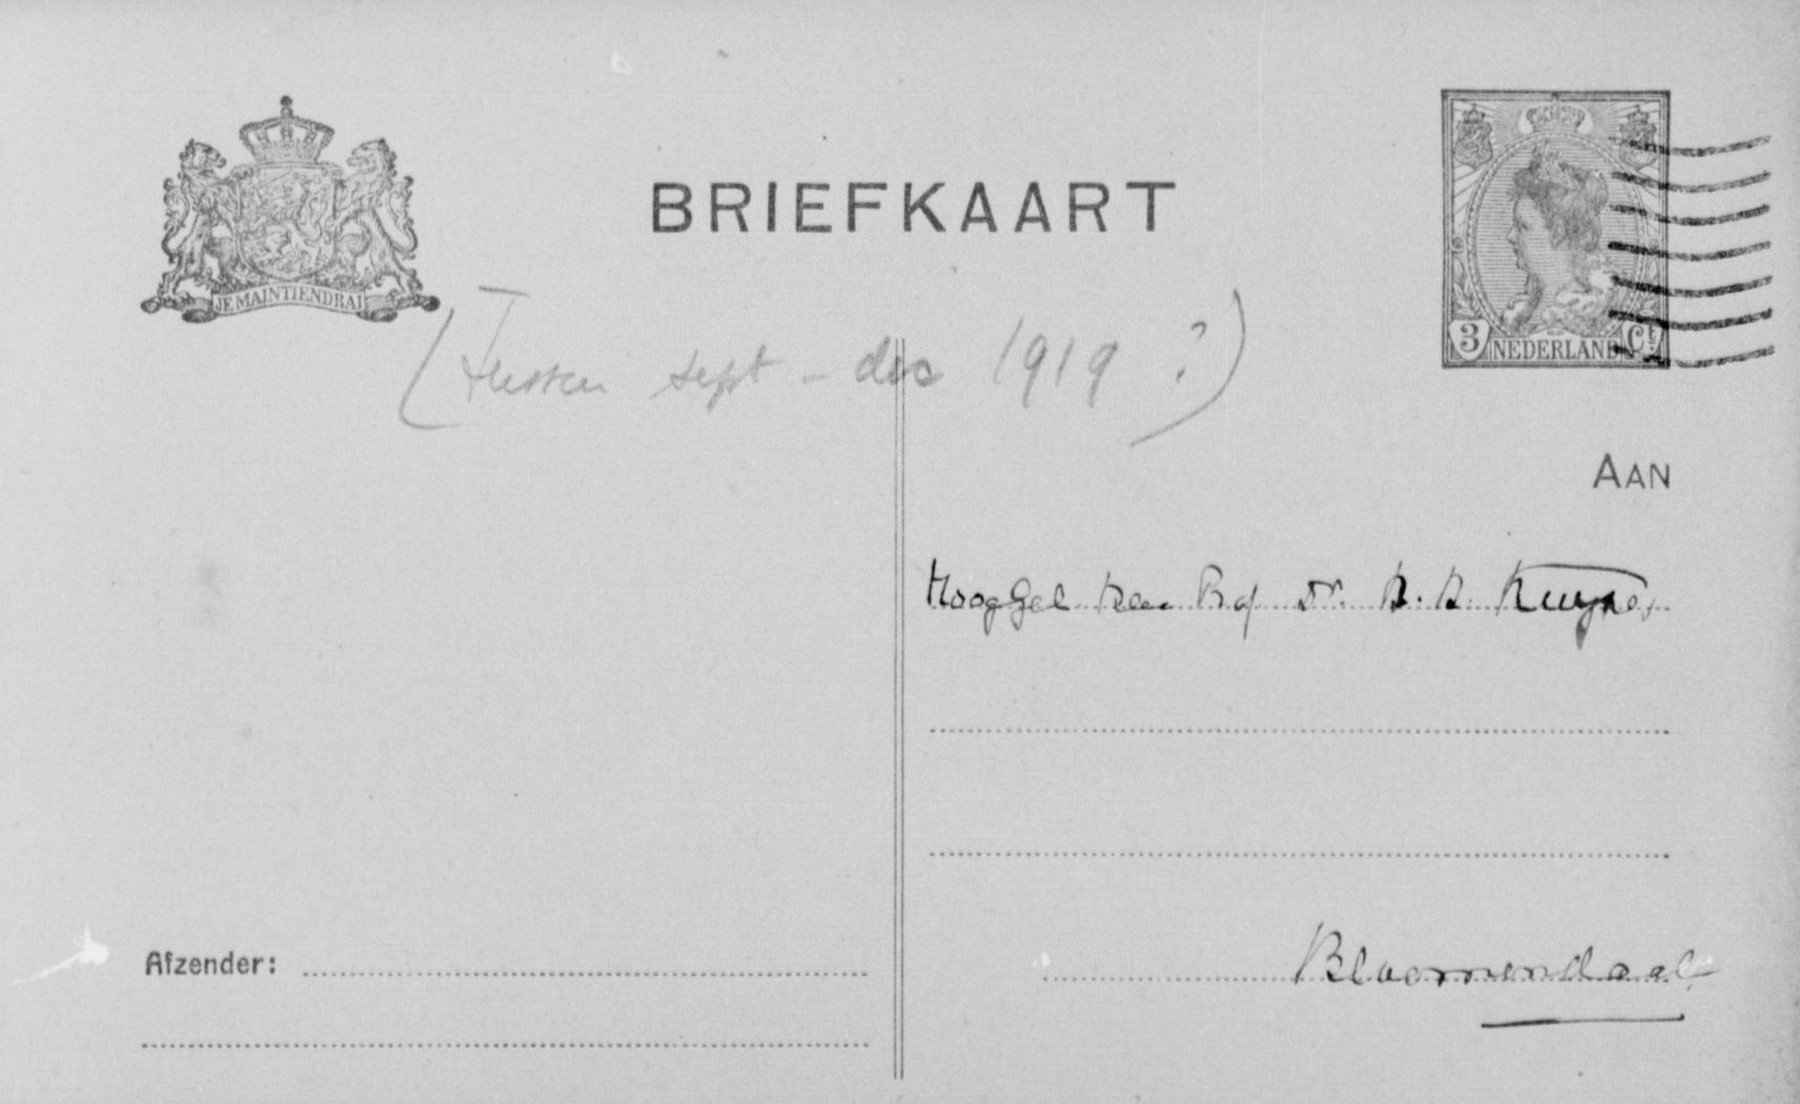 BRIEFKAART
JE MAINTIENDRAI
3 Ct
NEDERLAND
(Tussen sept - dec 1919 ?)
AAN
HoogGel Heer Prof Dr. H. H. Kuyper,
Bloemendaal
Afzender: